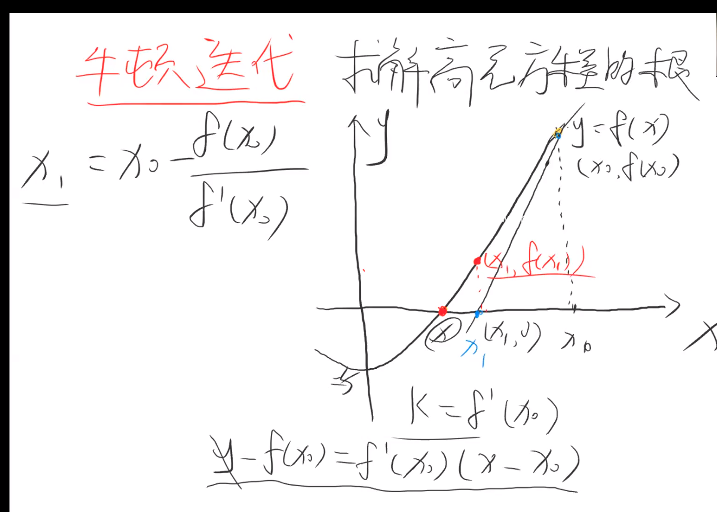 牛顿迭代 求解高元方程的根
x₁ = x₀ - f(x₀) / f'(x₀)
y
y = f(x)
(x₀, f(x₀))
(x₁, f(x₁))
x
x₁
(x₁, 0)
x₀
x
K = f'(x₀)
y - f(x₀) = f'(x₀)(x - x₀)